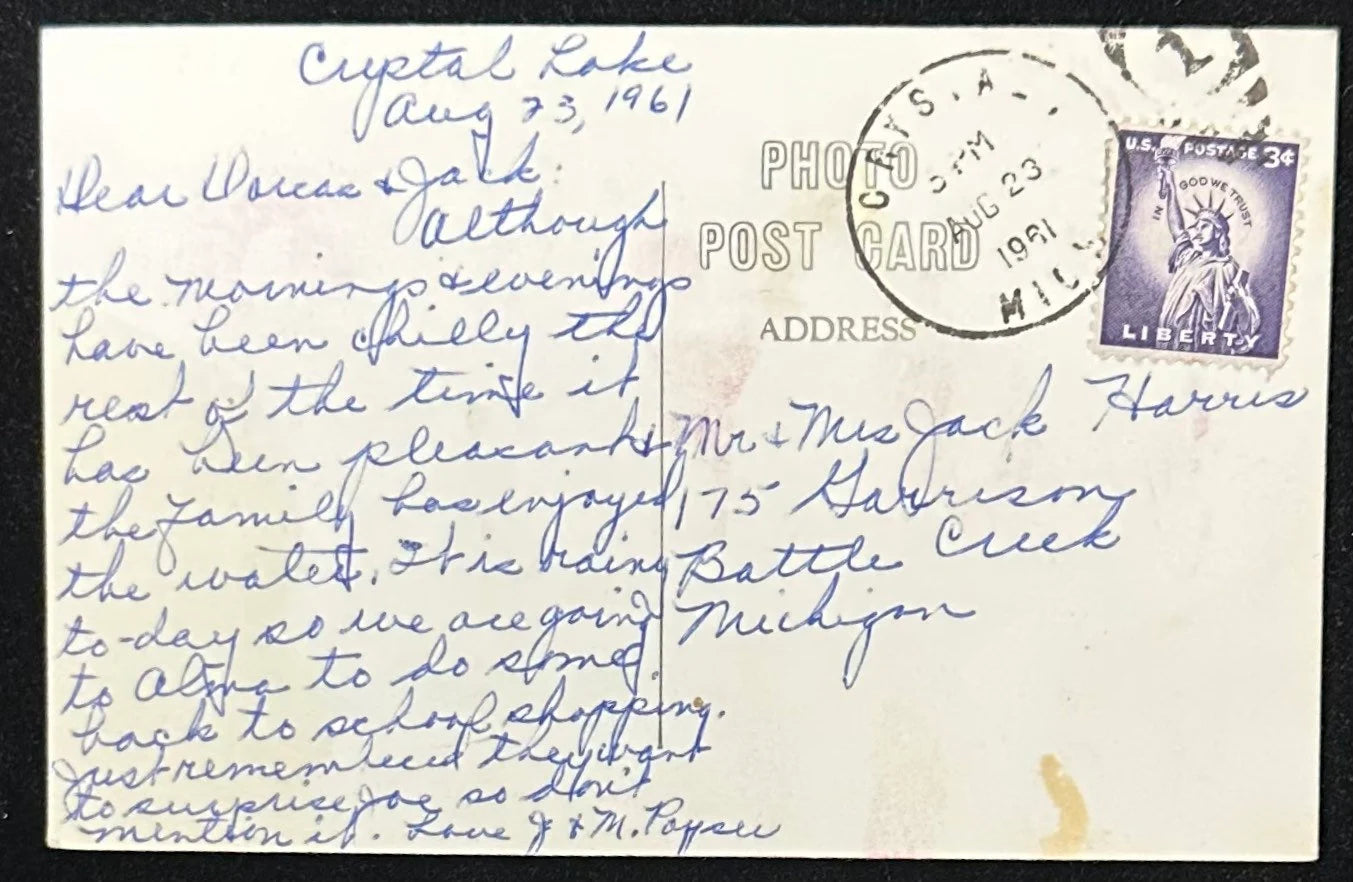 Crystal Lake
Aug 23, 1961
Dear Dorcas & Jack:
Although
the mornings & evenings
have been chilly the
rest o' the time it
has been pleasant &
the family has enjoyed
the water. It is rainy
to-day so we are going
to Alma to do some
back to school shopping.
Just remembered they want
to surprise Joe so don't
mention it. Love J & M.
PHOTO
POST CARD
ADDRESS
CRYSTAL
5 PM
AUG 23
1961
MICH
U.S. POSTAGE 3¢
IN GOD WE TRUST
LIBERTY
Mr & Mrs Jack Harris
175 Garrison
Battle Creek
Michigan